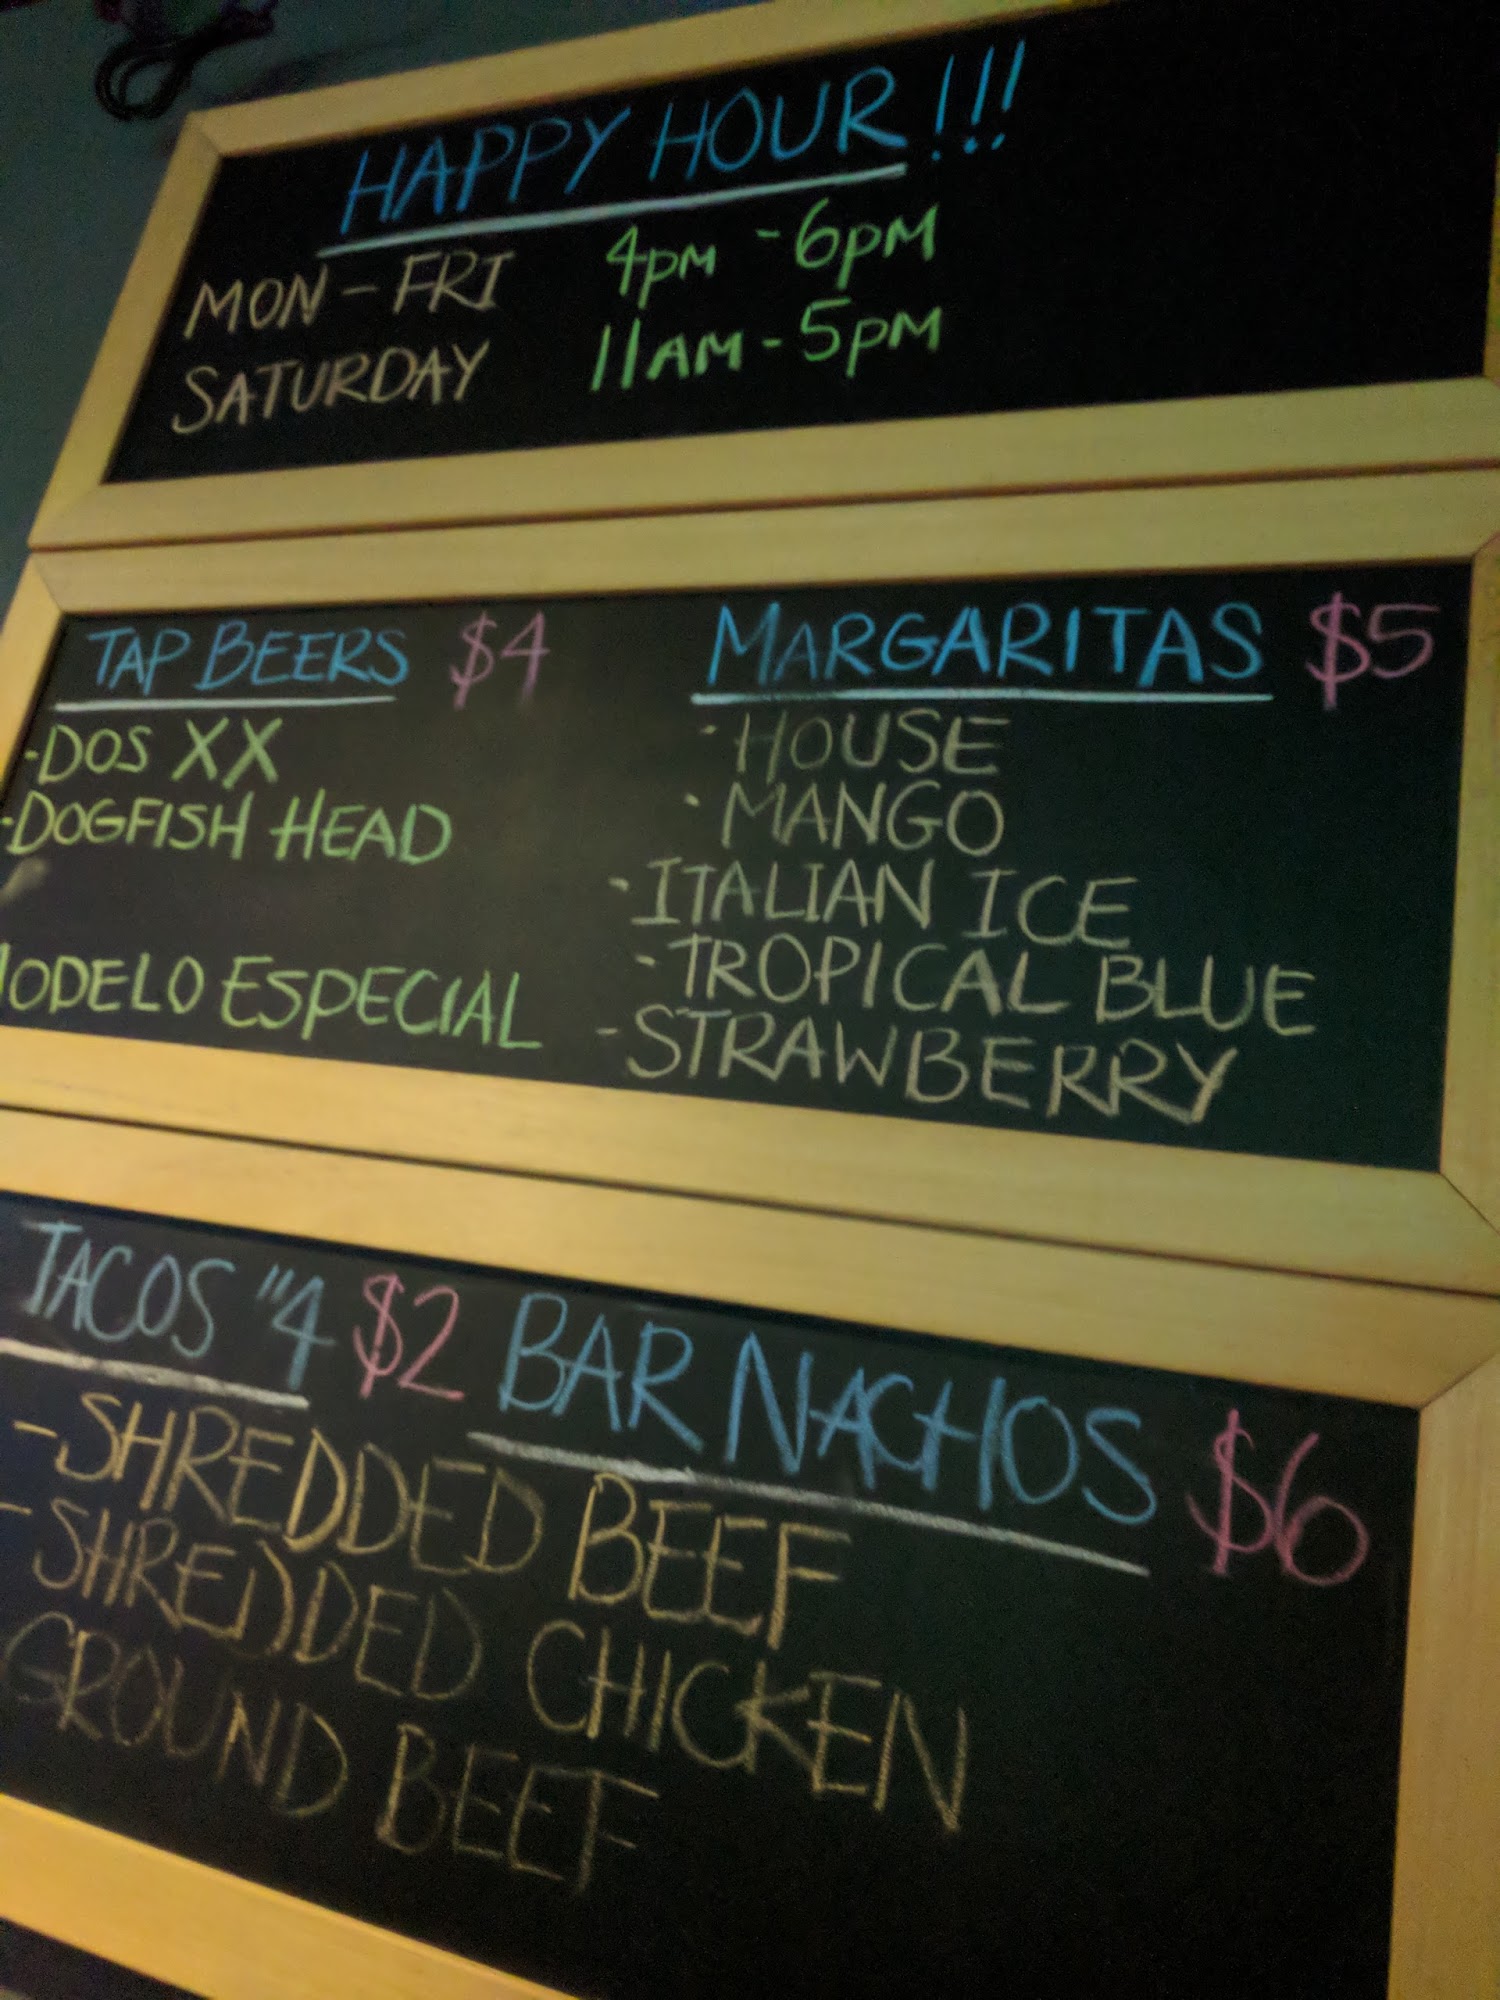 HAPPY HOUR!!!
MON - FRI 4PM - 6PM
SATURDAY 11AM - 5PM
TAP BEERS $4
- DOS XX
- DOGFISH HEAD
MODELO ESPECIAL
MARGARITAS $5
- HOUSE
- MANGO
- ITALIAN ICE
- TROPICAL BLUE
- STRAWBERRY
TACOS "4 $2
- SHREDDED BEEF
- SHREDDED CHICKEN
GROUND BEEF
BAR NACHOS $6